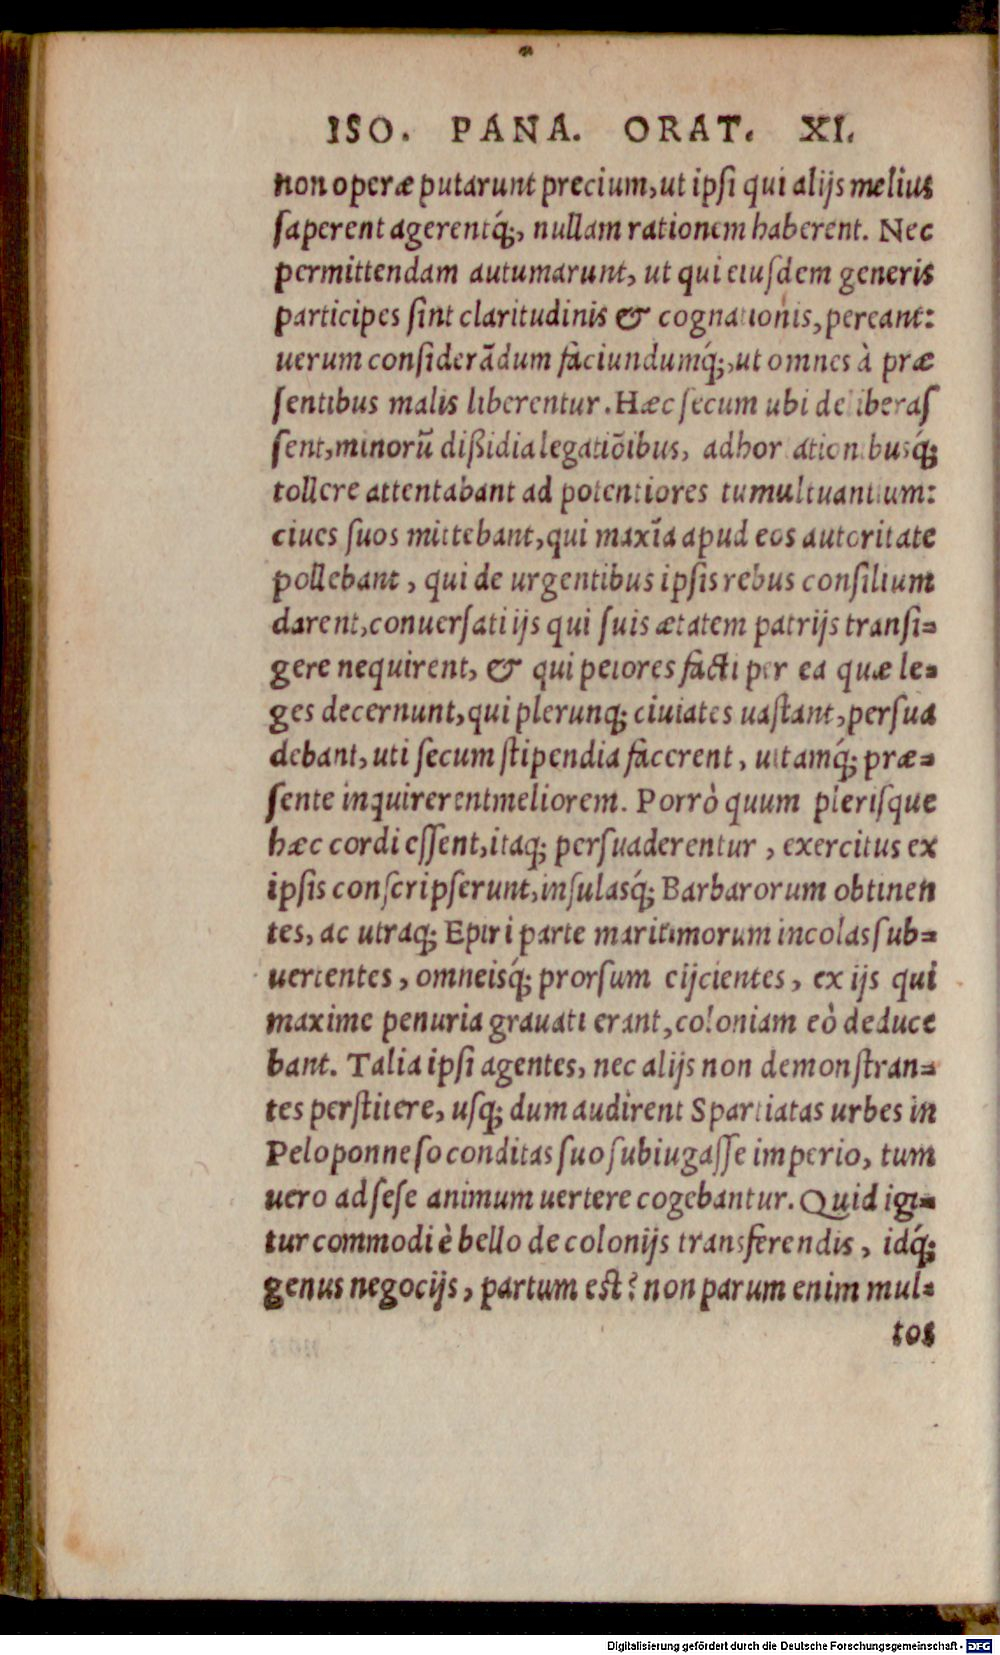 ISO. PANA. ORAT. XI.
non operæ putarunt precium, ut ipſi qui alijs melius
ſaperent agerentq́;, nullam rationem haberent. Nec
permittendam autumarunt, ut qui eiuſdem generis
participes ſint claritudinis & cognationis, pereant:
uerum conſiderãdum faciundumq́;, ut omnes à præ
ſentibus malis liberentur. Hæc ſecum ubi deliberaſ
ſent, minorũ dißidia legatiõibus, adhortationibusq́;
tollere attentabant ad potentiores tumultuantium:
ciues ſuos mittebant, qui maxĩa apud eos autoritate
pollebant, qui de urgentibus ipſis rebus conſilium
darent, conuerſati ijs qui ſuis ætatem patrijs tranſi-
gere nequirent, & qui peiores facti per ea quæ le-
ges decernunt, qui plerunq; ciuiates uaſtant, perſua
debant, uti ſecum ſtipendia facerent, uitamq́; præ-
ſente inquirerentmeliorem. Porrò quum pleriſque
hæc cordi eſſent, itaq; perſuaderentur, exercitus ex
ipſis conſcripſerunt, inſulasq́; Barbarorum obtinen
tes, ac utraq; Epiri parte maritimorum incolas ſub-
uertentes, omneisq́; prorſum eijcientes, ex ijs qui
maxime penuria grauati erant, coloniam eò deduce
bant. Talia ipſi agentes, nec alijs non demonſtran-
tes perſtitere, uſq; dum audirent Spartiatas urbes in
Peloponneſo conditas ſuo ſubiugaſſe imperio, tum
uero ad ſeſe animum uertere cogebantur. Quid igi-
tur commodi è bello de colonijs transferendis, idq́;
genus negocijs, partum eſt? non parum enim mul-
tos
Digitalisierung gefördert durch die Deutsche Forschungsgemeinschaft - DFG